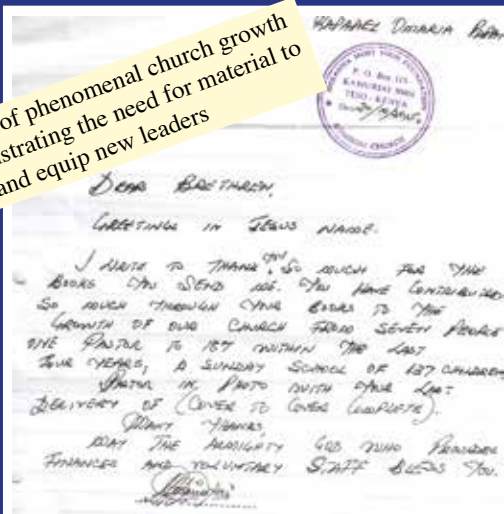 of phenomenal church growth
strating the need for material to
and equip new leaders
P. O. Box 115
TESO - KENYA
CHURCH
DEAR BRETHREN,
GREETINGS IN JESUS NAME.
I WRITE TO THANK YOU SO MUCH FOR THE
BOOKS YOU SEND ME. YOU HAVE CONTRIBUTED
SO MUCH THROUGH YOUR BOOKS TO THE
GROWTH OF OUR CHURCH FROM SEVEN PEOPLE
ONE PASTOR TO 187 WITHIN THE LAST
FOUR YEARS, A SUNDAY SCHOOL OF 137 CHILDREN
PASTOR IN PHOTO WITH YOUR LAST
DELIVERY OF (COVER TO COVER COMPLETE).
MANY THANKS,
MAY THE ALMIGHTY GOD WHO PROVIDES
FINANCES AND VOLUNTARY STAFF BLESS YOU.